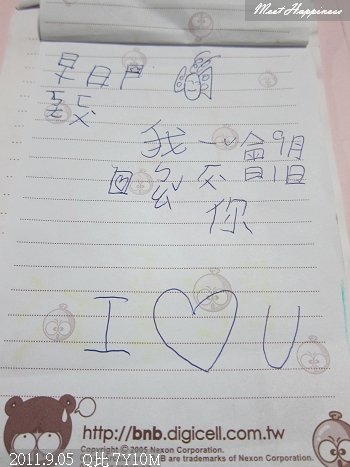 Meet Happiness
早日門
致
我一會9月
回 1日
你
I ♡ U
http://bnb.digicell.com.tw
Copyright © 2005 Nexon Corporation.
NB are trademarks of Nexon Corporation.
2011.9.05 Q比7Y10M